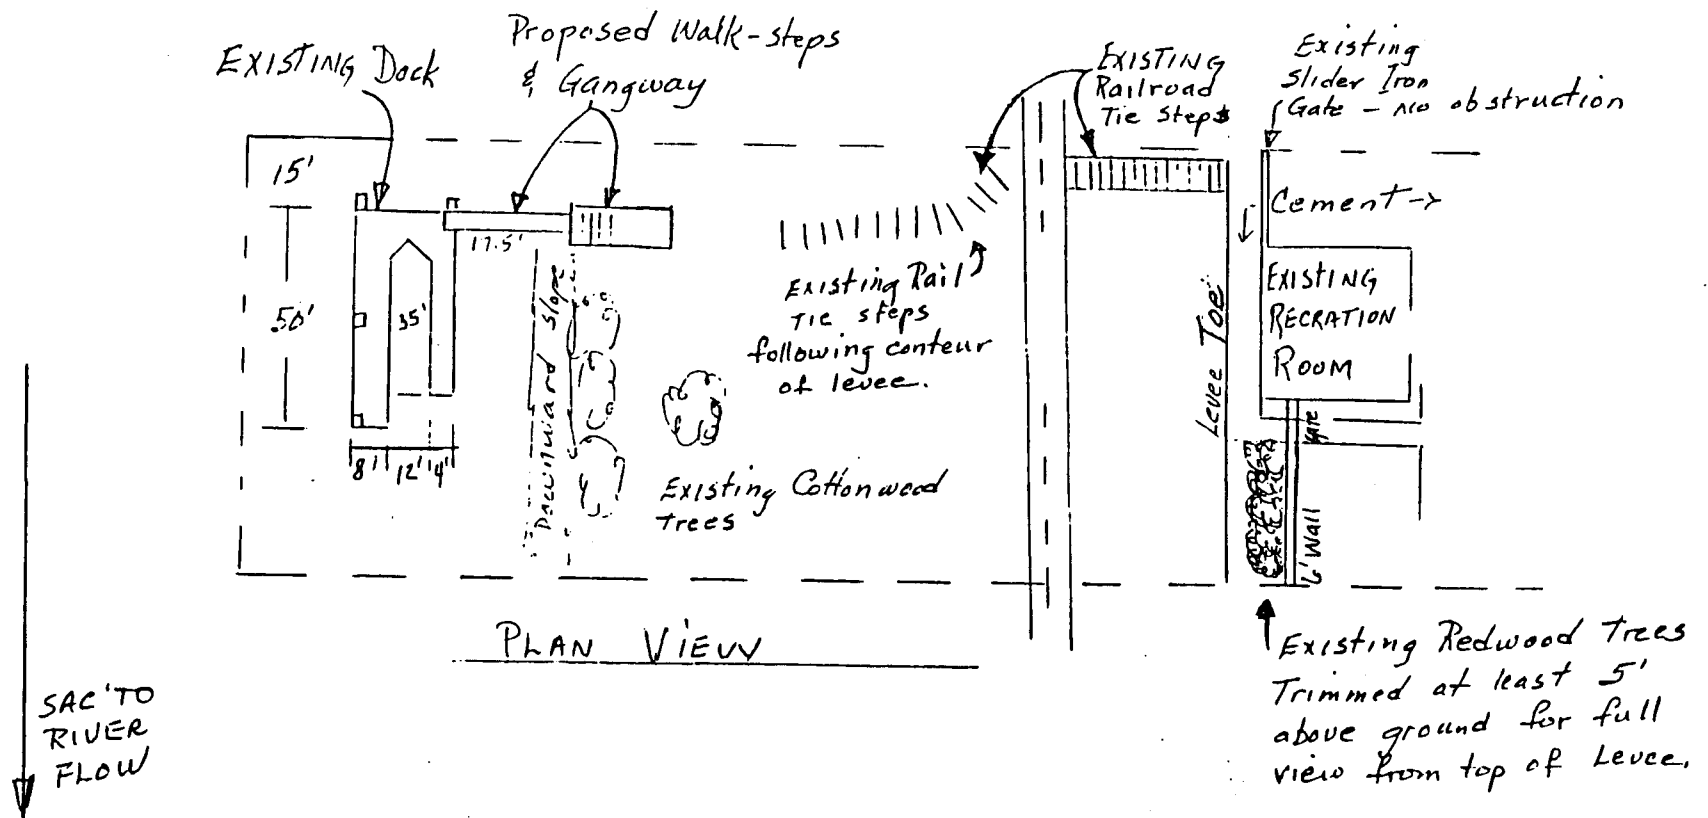 EXISTING Dock
Proposed Walk-steps
& Gangway
EXISTING
Railroad
Tie Steps
Existing
Slider Iron
Gate - no obstruction
15'
50'
35'
17.5'
8' 12' 4'
Downward Slope
Existing Rail
Tie steps
following conteur
of levee.
Existing Cottonwood
Trees
Levee Toe
Cement →
EXISTING
RECRATION
ROOM
GATE
6' Wall
PLAN VIEW
SAC'TO
RIVER
FLOW
Existing Redwood Trees
Trimmed at least 5'
above ground for full
view from top of Levee.